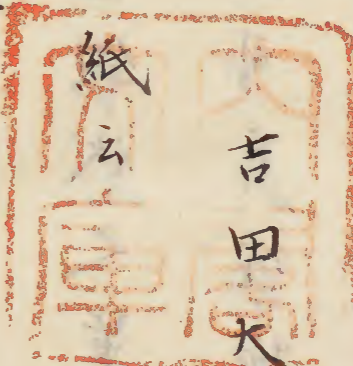 吉田大
紙云